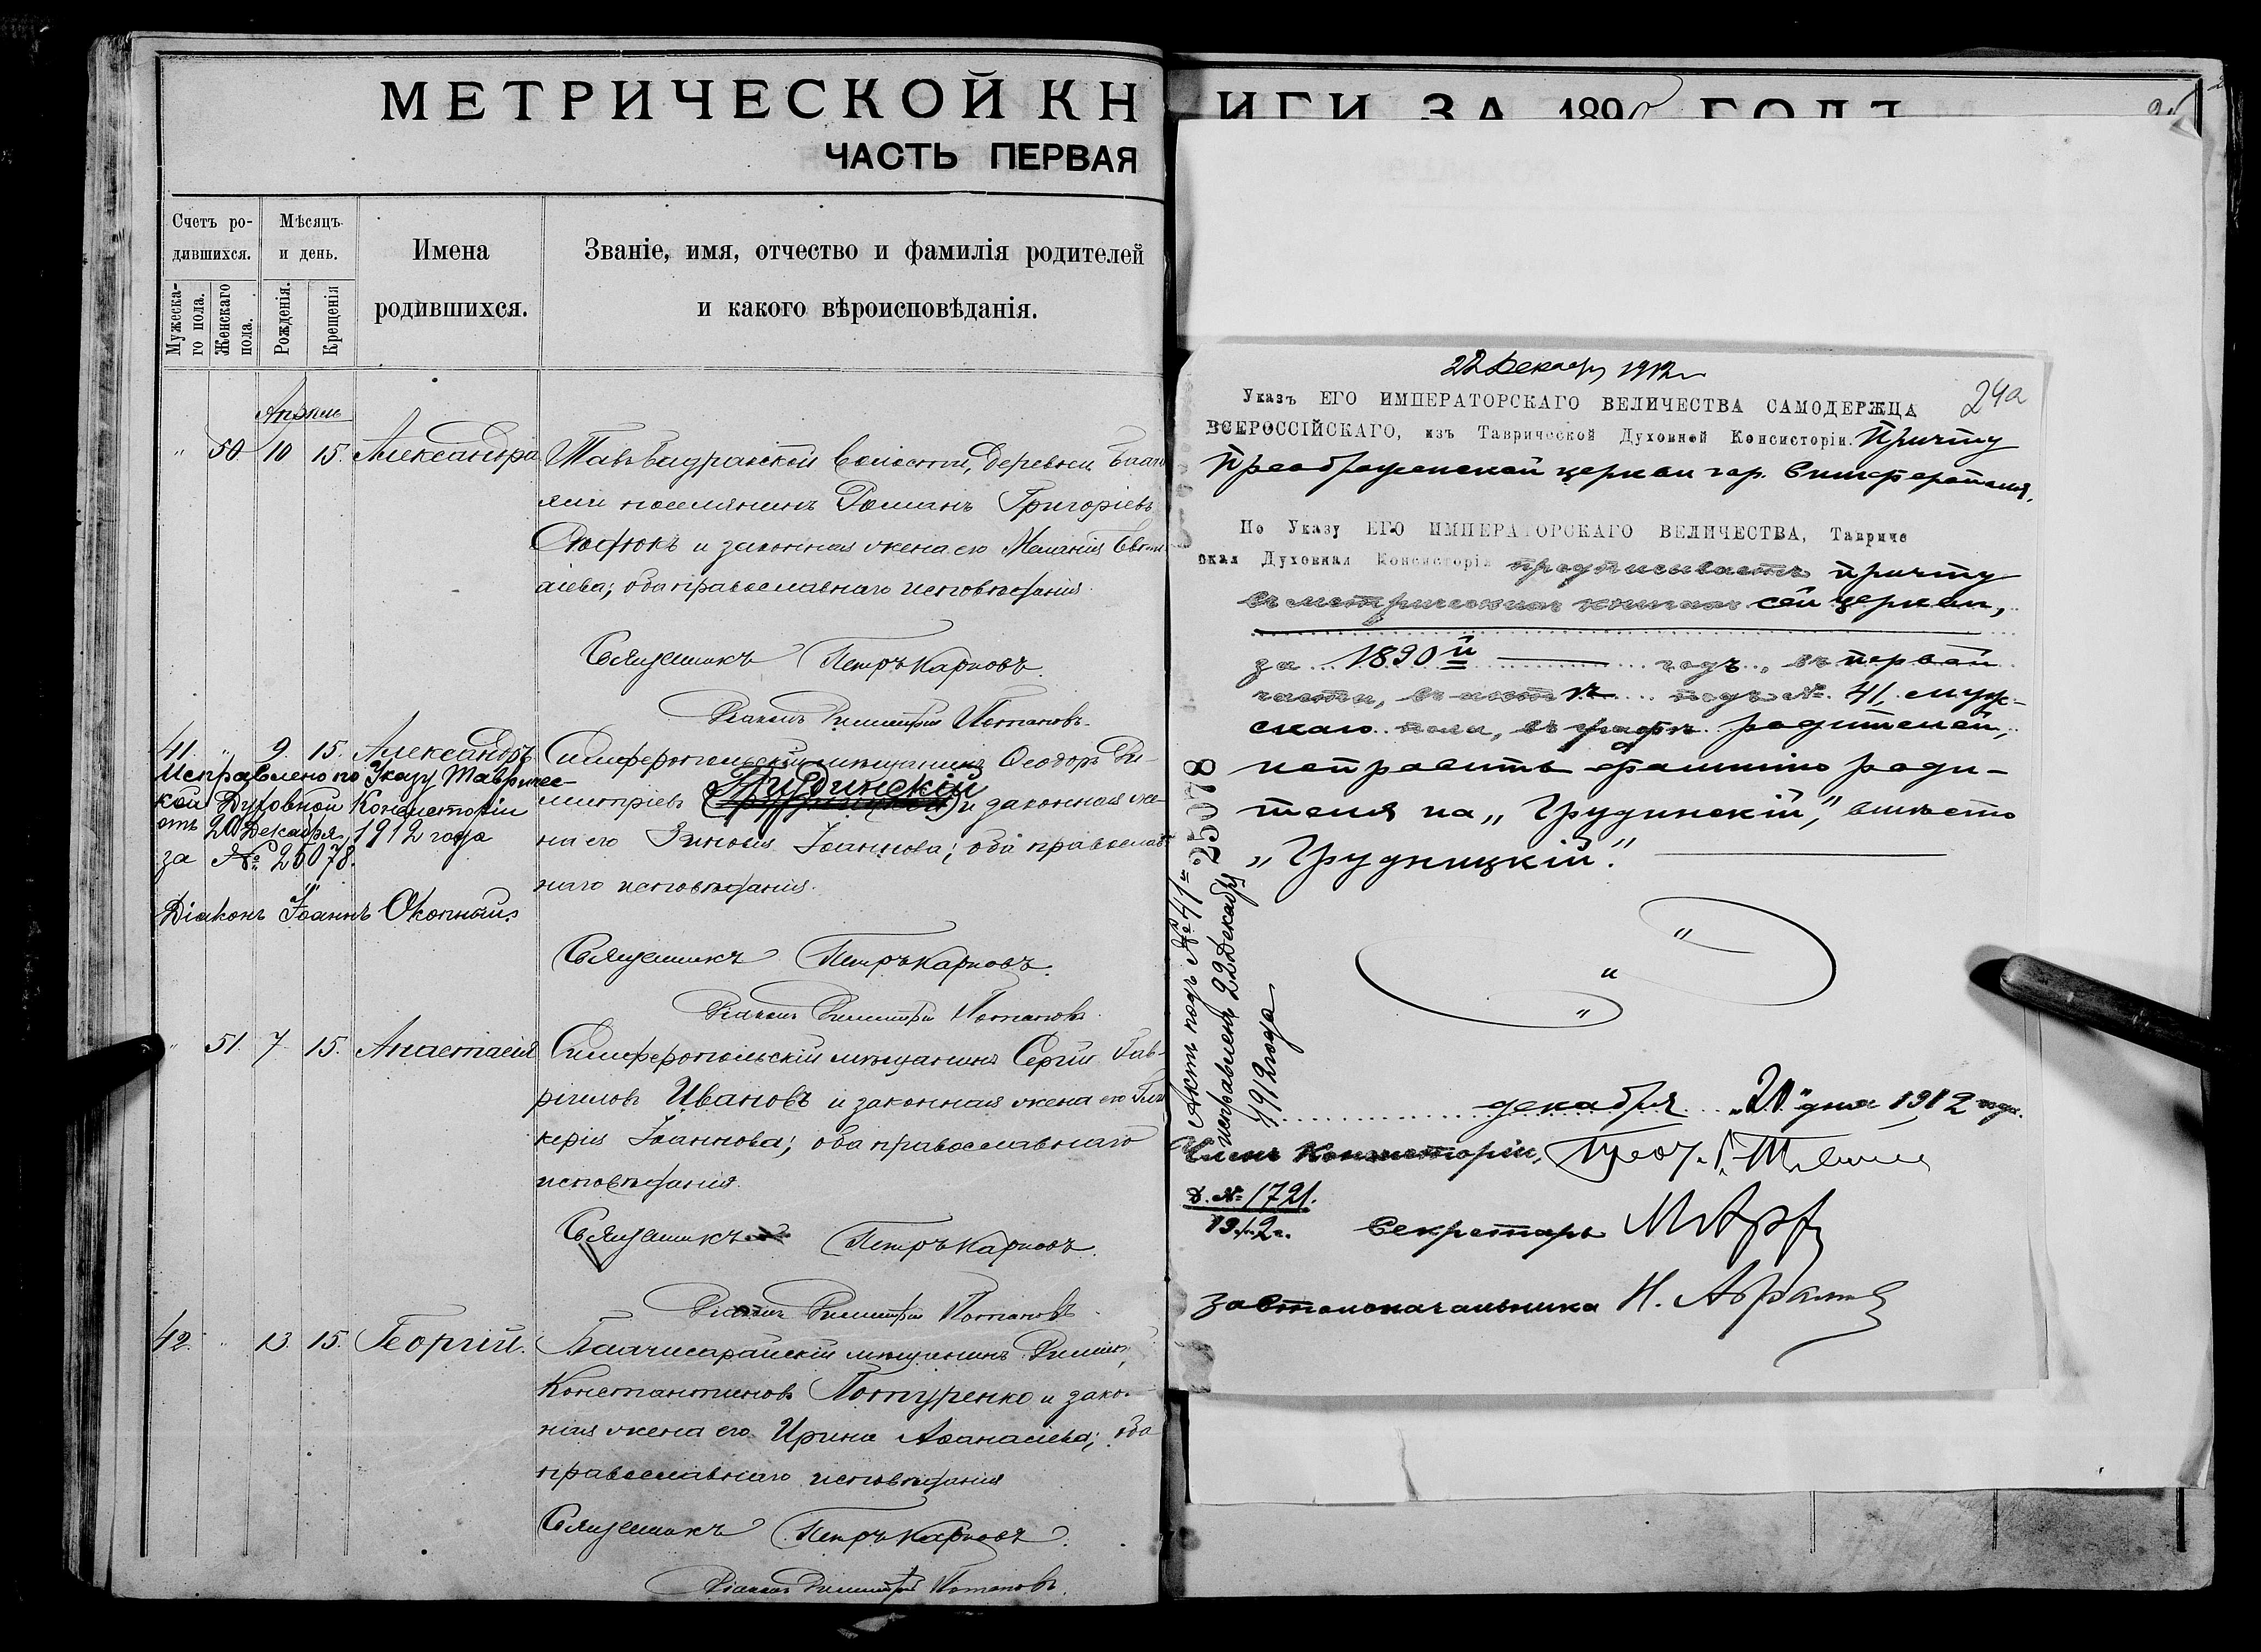 МЕТРИЧЕСКОЙ КН
ЧАСТЬ ПЕРВАЯ
Счетъ ро-
дившихся.
Мужеска-
го пола.
Женскаго
пола.
Мѣсяцъ
и день.
Рожденія.
Крещенія
Имена
родившихся.
Званіе, имя, отчество и фамилія родителей
и какого вѣроисповѣданія.
Апрѣль
" 50 10 15. Александра
волости, деревни
поселянинъ Романъ Григоріевъ
и законная жена его Меланія
оба православнаго исповѣданія.
Священникъ Петръ Карповъ.
Діаконъ Димитрій Потаповъ.
41. " 9. 15. Александръ
Симферопольскій мѣщанинъ Ѳеодоръ Ди-
митріевъ Грудинскій и законная же-
на его Зиновія Іоаннова; оба православ-
наго исповѣданія.
Исправлено по Указу Тавричес-
кой Духовной Консисторіи
отъ 20 Декабря 1912 года
за № 25078.
Діаконъ Іоаннъ Окопный.
Священникъ Петръ Карповъ.
Діаконъ Димитрій Потаповъ.
" 51. 7 15. Анастасія
Симферопольскій мѣщанинъ Сергій Гав-
ріиловъ Ивановъ и законная жена его Гли
керія Іоаннова; оба православнаго
исповѣданія.
Священникъ Петръ Карповъ.
Діаконъ Димитрій Потаповъ.
42. " 13. 15. Георгій.
Бахчисарайскій мѣщанинъ
Константиновъ Потуренко и закон-
ная жена его Ирина Аѳанасіева; оба
православнаго исповѣданія
Священникъ Петръ Карповъ.
Діаконъ Димитрій Потаповъ.
ИГИ ЗА 1890 ГОДЪ
22 Декабр 1912 г
24а
Указъ ЕГО ИМПЕРАТОРСКАГО ВЕЛИЧЕСТВА САМОДЕРЖЦА
ВСЕРОССІЙСКАГО, изъ Таврической Духовной Консисторіи. Причту
Преображенской церкви гор. Симферополя.
По Указу ЕГО ИМПЕРАТОРСКАГО ВЕЛИЧЕСТВА, Тавриче
ская Духовная Консисторія предписываетъ причту
въ метрическихъ книгахъ сей церкви,
за 1890й годъ, въ первой
части, въ актѣ подъ № 41, муж-
скаго пола, въ графѣ родителей,
исправить фамилію роди-
теля на „Грудинскій", вмѣсто
„Грудницкій".
декабря „20" дня 1912 года.
Членъ Консисторіи,
Д. № 1721.
1912 г.
Секретарь
За Столоначальника Н.
Актъ подъ № 41й
исправленъ 22 Декабря
1912 года
25078